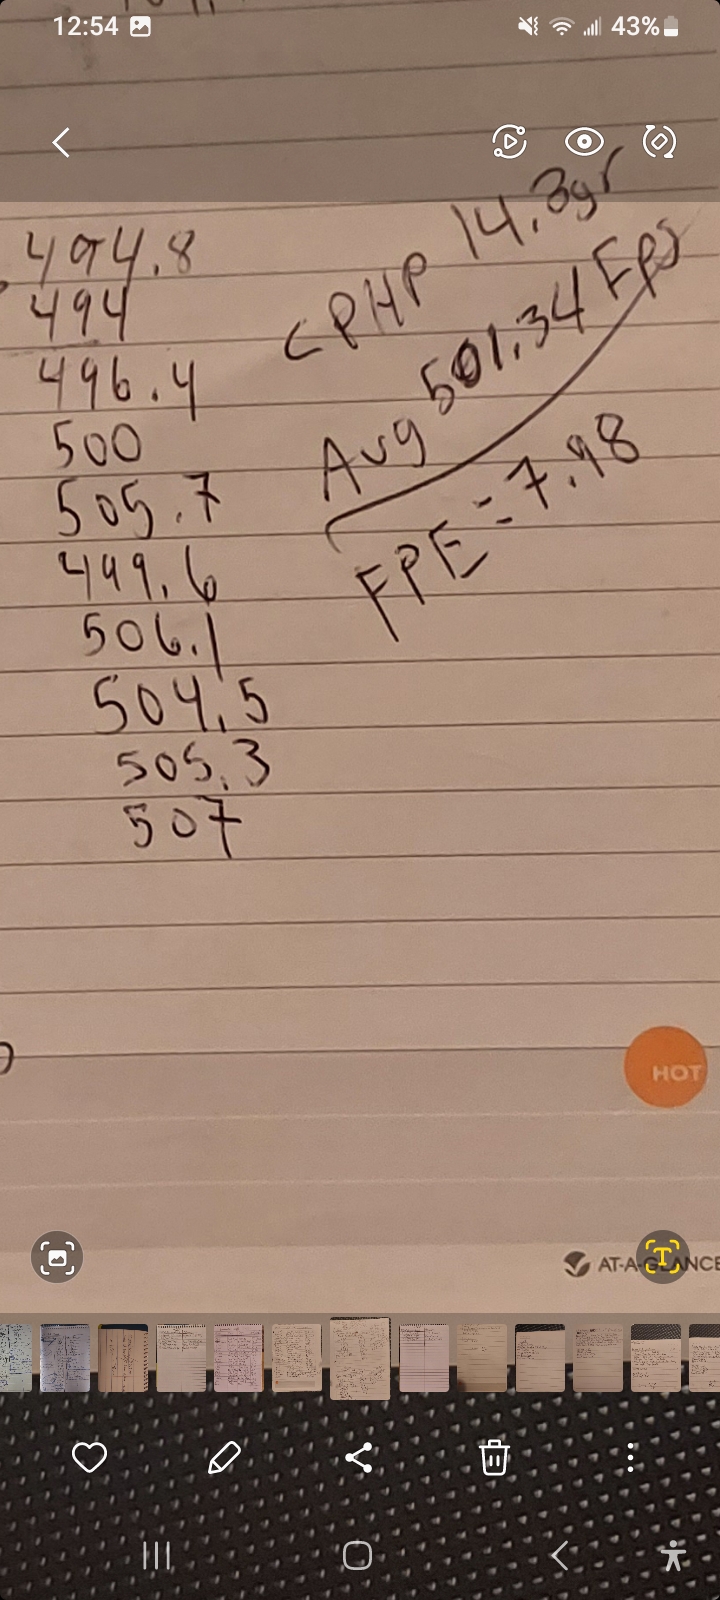 12:54
43%
494.8
494
496.4
500
505.7
499.6
506.1
504.5
505.3
507
CPHP 14.3gr
Avg 501.34 Fps
FPE = 7.98
HOT
AT-A-GLANCE
T